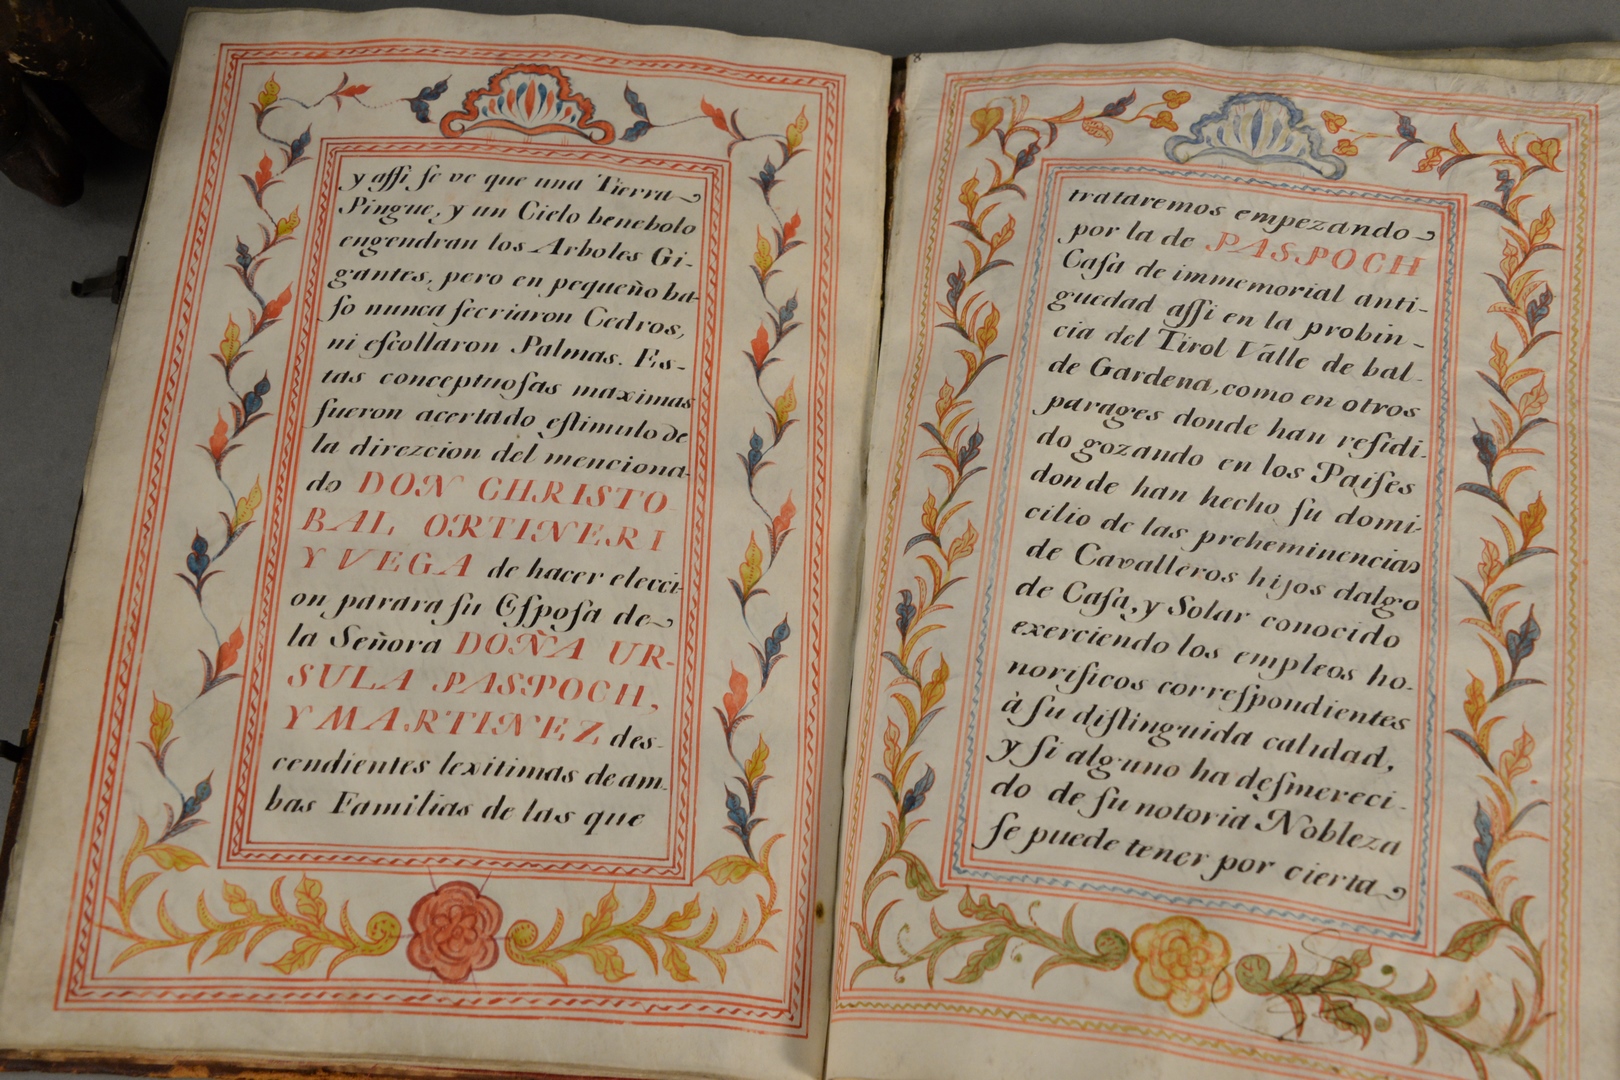 y assi se ve que una Tierra
Pingue, y un Cielo benebolo
engendran los Arboles Gi-
gantes, pero en pequeño ba-
so nunca secriaron Cedros,
ni escollaron Palmas. Es-
tas conceptuosas maximas
fueron acertado estimulo de
la direzcion del menciona-
do DON CHRISTO-
BAL ORTINERI
Y VEGA de hacer elecci-
on parara su Esposa de
la Señora DOÑA UR-
SULA PASPOCH,
Y MARTINEZ des-
cendientes lexitimas de am-
bas Familias de las que
trataremos empezando
por la de PASPOCH
Casa de immemorial anti-
guedad assi en la probin-
cia del Tirol Valle de bal-
de Gardena, como en otros
parages donde han residi-
do gozando en los Paises
donde han hecho su domi-
cilio de las preheminencias
de Cavalleros hijos dalgo
de Casa, y Solar conocido
exerciendo los empleos ho-
norificos correspondientes
à su distinguida calidad,
y si alguno ha desmereci-
do de su notoria Nobleza
se puede tener por cierta